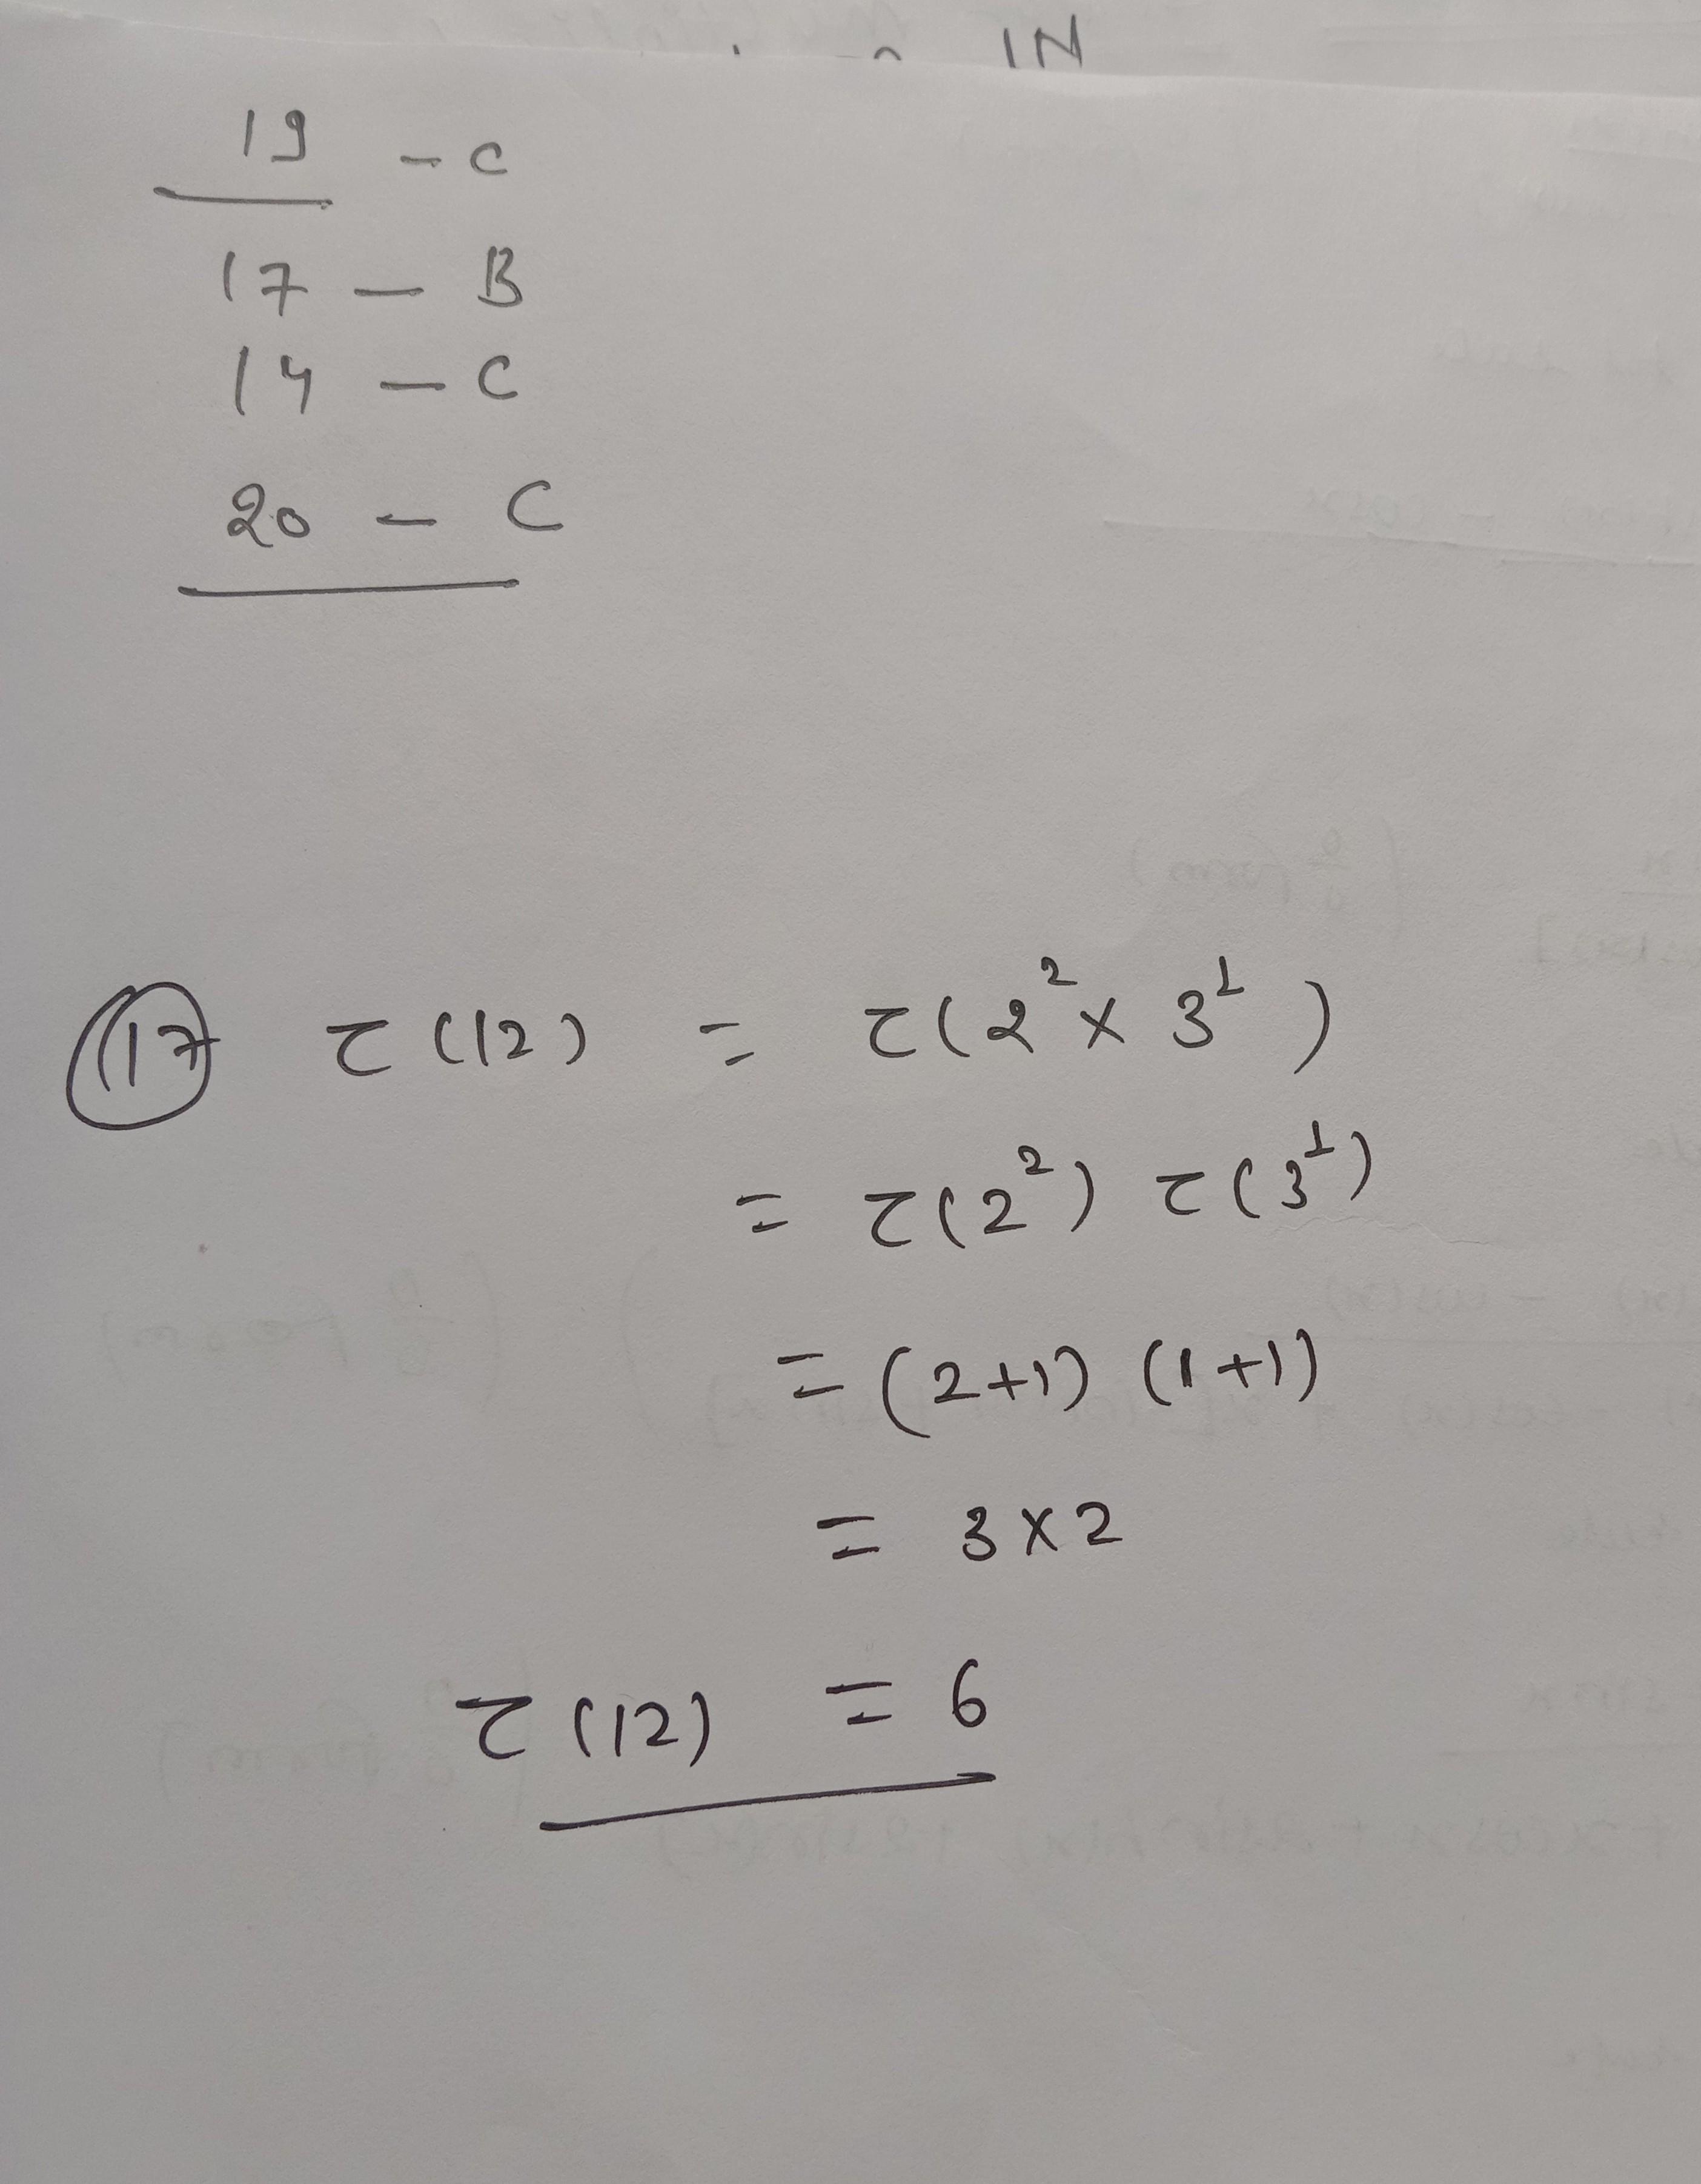 IN
19 - C
17 - B
14 - C
20 - C
17 τ(12) = τ(2² × 3¹)
= τ(2²) τ(3¹)
= (2+1) (1+1)
= 3×2
τ(12) = 6